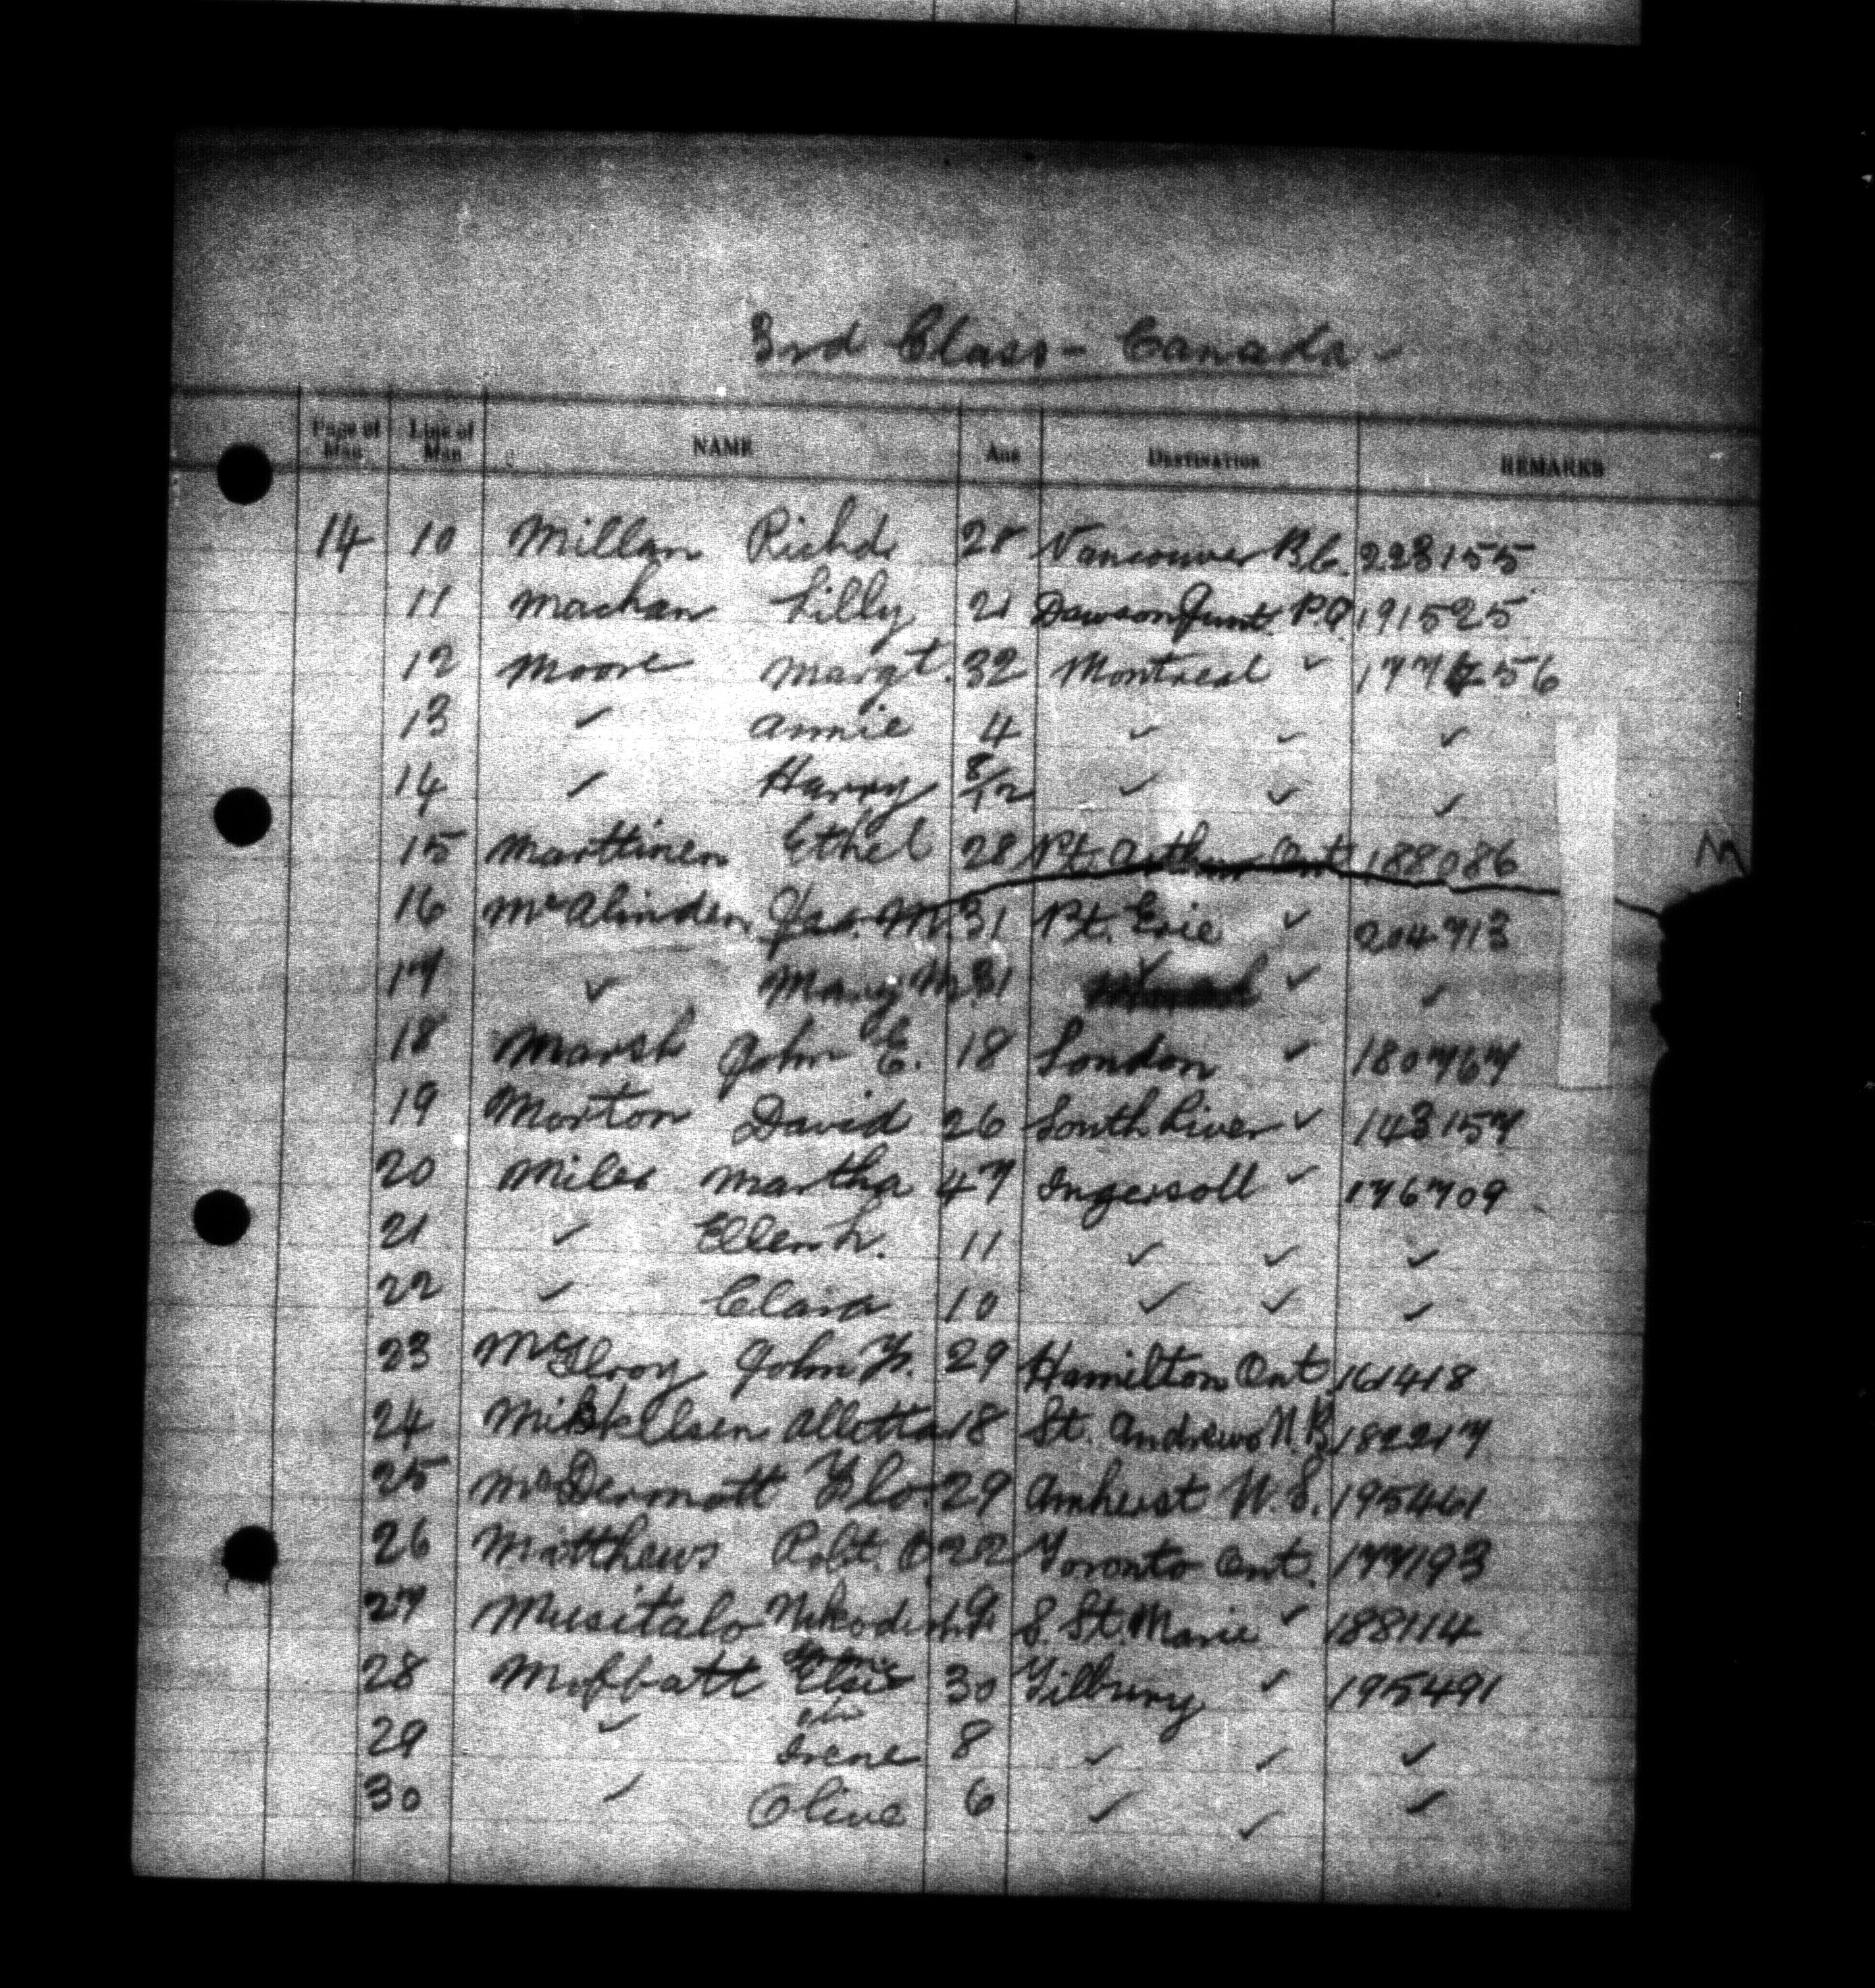 3rd Class - Canada
Page of Man Line of Man NAME Age DESTINATION REMARKS
14 10 Millan Richd. 28 Vancouver B.C. 223155
11 Machan Lilly 21 Dawson Junt. P.Q. 191525
12 Moore Margt. 32 Montreal ✓ 56
13 ✓ Annie 4 ✓ ✓ ✓
14 ✓ Harry 8/12 ✓ ✓ ✓
15 Marttinen Ethel 28 Pt. Arthur Ont. 188086 M
16 McAlinden Jas. M. 31 Pt. Erie ✓ 204713
17 ✓ Mary M. 31 ✓ ✓
18 Marsh John E. 18 London ✓ 180767
19 Morton David 26 South River ✓ 143157
20 Miles Martha 47 Ingersoll ✓ 176709
21 ✓ Ellen L. 11 ✓ ✓ ✓
22 ✓ Clara 10 ✓ ✓ ✓
23 McIlroy John F. 29 Hamilton Ont. 161418
24 Mikkelsen Alletta 18 St. Andrews N.B. 182217
25 McDermott Flo. 29 Amherst N.S. 195461
26 Matthews Robt. 22 Toronto Ont. 177193
27 Musitalo S. St. Marie ✓ 188114
28 Moffatt Elsie 30 Tilbury ✓ 195491
29 ✓ Irene 8 ✓ ✓ ✓
30 ✓ Olive 6 ✓ ✓ ✓